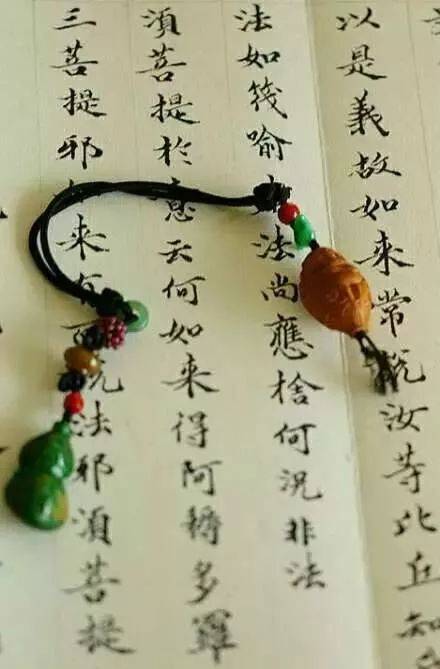 以是義故如來常說汝等比丘知
法如筏喻法尚應捨何況非法
須菩提於意云何如來得阿耨多羅
三菩提邪如來有說法邪須菩提